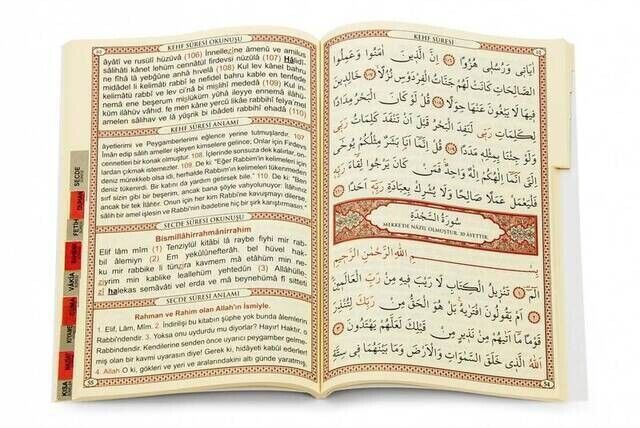 KEHF SÛRESİ OKUNUŞU
âyâtî ve rusulî hüzüvâ (106) İnnellezîne âmenû ve amilus
sâlihâti kânet lehüm cennâtül firdevsi nüzülâ (107) Hâlidî-
ne fîhâ lâ yebğûne anhâ hıvelâ (108) Kul lev kânel bahru
midâdel li kelimâti rabbî le nefidel bahru kable en tenfede
kelimâtü rabbî ve lev ci'nâ bi mislihî mededâ (109) Kul in-
nemâ ene beşerum mislüküm yûhâ ileyye ennemâ ilâhü-
küm ilâhüv vâhid, fe men kâne yercû likâe rabbihî felya'mel
amelen sâlihav ve lâ yüşrik bi ibâdeti rabbihî ehadâ (110)
KEHF SÛRESİ ANLAMI
âyetlerimi ve Peygamberlerimi eğlence yerine tutmuşlardır. 107
İman edip sâlih ameller işleyen kimselere gelince; Onlar için Firdevs
cennetleri bir konak olmuştur. 108. İçlerinde sonsuza dek kalırlar, on-
lardan çıkmak istemezler. 109. De ki: "Eğer Rabbim'in kelimeleri için
deniz mürekkeb olsa idi, herhalde Rabbim'in kelimeleri tükenmeden
deniz tükenirdi. Bir katını da yardım getirsek bile." 110. De ki: "Ben
sırf sizin gibi bir beşerim, ancak bana şöyle vahyolunuyor: İlâhınız
ancak bir tek İlâhtır. Onun için her kim Rabbi'ne kavuşmayı ümid ederse,
sâlih bir amel işlesin ve Rabbi'nin ibadetine hiç bir şirk karıştırmasın."
SECDE SÛRESİ OKUNUŞU
Bismillâhirrahmânirrahim
Elif lâm mîm (1) Tenzîylül kitâbi lâ raybe fîyhi mir rab-
bil âlemîyn (2) Em yekûlûnefterâh, bel hüvel hak-
ku mir rabbike li tünzira kavmem mâ etâhüm min ne-
zîyrim min kablike leallehüm yehtedûn (3) Allâhülle-
zî halekas semâvâti vel erda ve mâ beynehümâ fî sitteti
SECDE SÛRESİ ANLAMI
Rahman ve Rahim olan Allah'ın İsmiyle.
1. Elif, Lâm, Mîm. 2. İndirilişi bu kitabın şüphe yok bunda âlemlerin
Rabbi'ndendir. 3. Yoksa onu uydurdu mu diyorlar? Hayır! Haktır, o
Rabbi'ndendir. Kendilerine senden önce uyarıcı peygamber gelme-
miş olan bir kavmi uyarasın diye! Gerek ki, hidâyeti kabûl ederler!
4. Allah O ki, gökleri ve yeri ve aralarındakini altı günde yaratmış,
55
SECDE
DUHAN
FETH
RAHMAN
VAKIA
KEHF SÛRESİ
اٰيَاتٖي وَرُسُلٖي هُزُوًا ﴿١٠٦﴾ اِنَّ الَّذٖينَ اٰمَنُوا وَعَمِلُوا
الصَّالِحَاتِ كَانَتْ لَهُمْ جَنَّاتُ الْفِرْدَوْسِ نُزُلًا ﴿١٠٧﴾ خَالِدٖينَ
فٖيهَا لَا يَبْغُونَ عَنْهَا حِوَلًا ﴿١٠٨﴾ قُلْ لَوْ كَانَ الْبَحْرُ مِدَادًا
لِكَلِمَاتِ رَبّٖي لَنَفِدَ الْبَحْرُ قَبْلَ اَنْ تَنْفَدَ كَلِمَاتُ رَبّٖي
وَلَوْ جِئْنَا بِمِثْلِهٖ مَدَدًا ﴿١٠٩﴾ قُلْ اِنَّمَا اَنَا بَشَرٌ مِثْلُكُمْ يُوحٰى
اِلَيَّ اَنَّمَا اِلٰهُكُمْ اِلٰهٌ وَاحِدٌ فَمَنْ كَانَ يَرْجُوا لِقَاءَ
رَبِّهٖ فَلْيَعْمَلْ عَمَلًا صَالِحًا وَلَا يُشْرِكْ بِعِبَادَةِ رَبِّهٖ اَحَدًا ﴿١١٠﴾
سُورَةُ السَّجْدَةِ
MEKKE'DE NÂZİL OLMUŞTUR. 30 ÂYETTİR.
بِسْمِ اللهِ الرَّحْمٰنِ الرَّحٖيمِ
الٓمٓ ﴿١﴾ تَنْزٖيلُ الْكِتَابِ لَا رَيْبَ فٖيهِ مِنْ رَبِّ الْعَالَمٖينَ
﴿٢﴾ اَمْ يَقُولُونَ افْتَرٰيهُ بَلْ هُوَ الْحَقُّ مِنْ رَبِّكَ لِتُنْذِرَ
قَوْمًا مَا اَتٰيهُمْ مِنْ نَذٖيرٍ مِنْ قَبْلِكَ لَعَلَّهُمْ يَهْتَدُونَ ﴿٣﴾
اَللهُ الَّذٖي خَلَقَ السَّمٰوَاتِ وَالْاَرْضَ وَمَا بَيْنَهُمَا فٖي سِتَّةِ
54